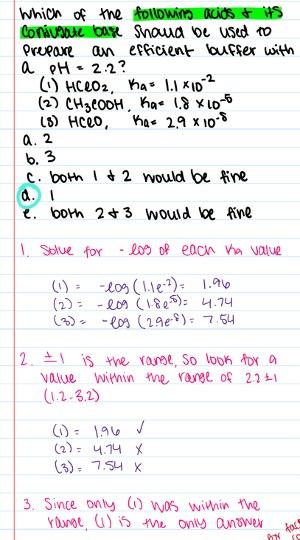 Which of the following acids & its
conjugate base should be used to
prepare an efficient buffer with
a pH = 2.2?
(1) HClO₂, Ka = 1.1 × 10⁻²
(2) CH₃COOH, Ka = 1.8 × 10⁻⁵
(3) HClO, Ka = 2.9 × 10⁻⁸
a. 2
b. 3
c. both 1 & 2 would be fine
d. 1
e. both 2 & 3 would be fine
1. Solve for -log of each Ka value
(1) = -log (1.1e⁻²) = 1.96
(2) = -log (1.8e⁻⁵) = 4.74
(3) = -log (2.9e⁻⁸) = 7.54
2. ±1 is the range, so look for a
value within the range of 2.2 ± 1
(1.2-3.2)
(1) = 1.96 ✓
(2) = 4.74 x
(3) = 7.54 x
3. Since only (1) was within the
range, (1) is the only answer